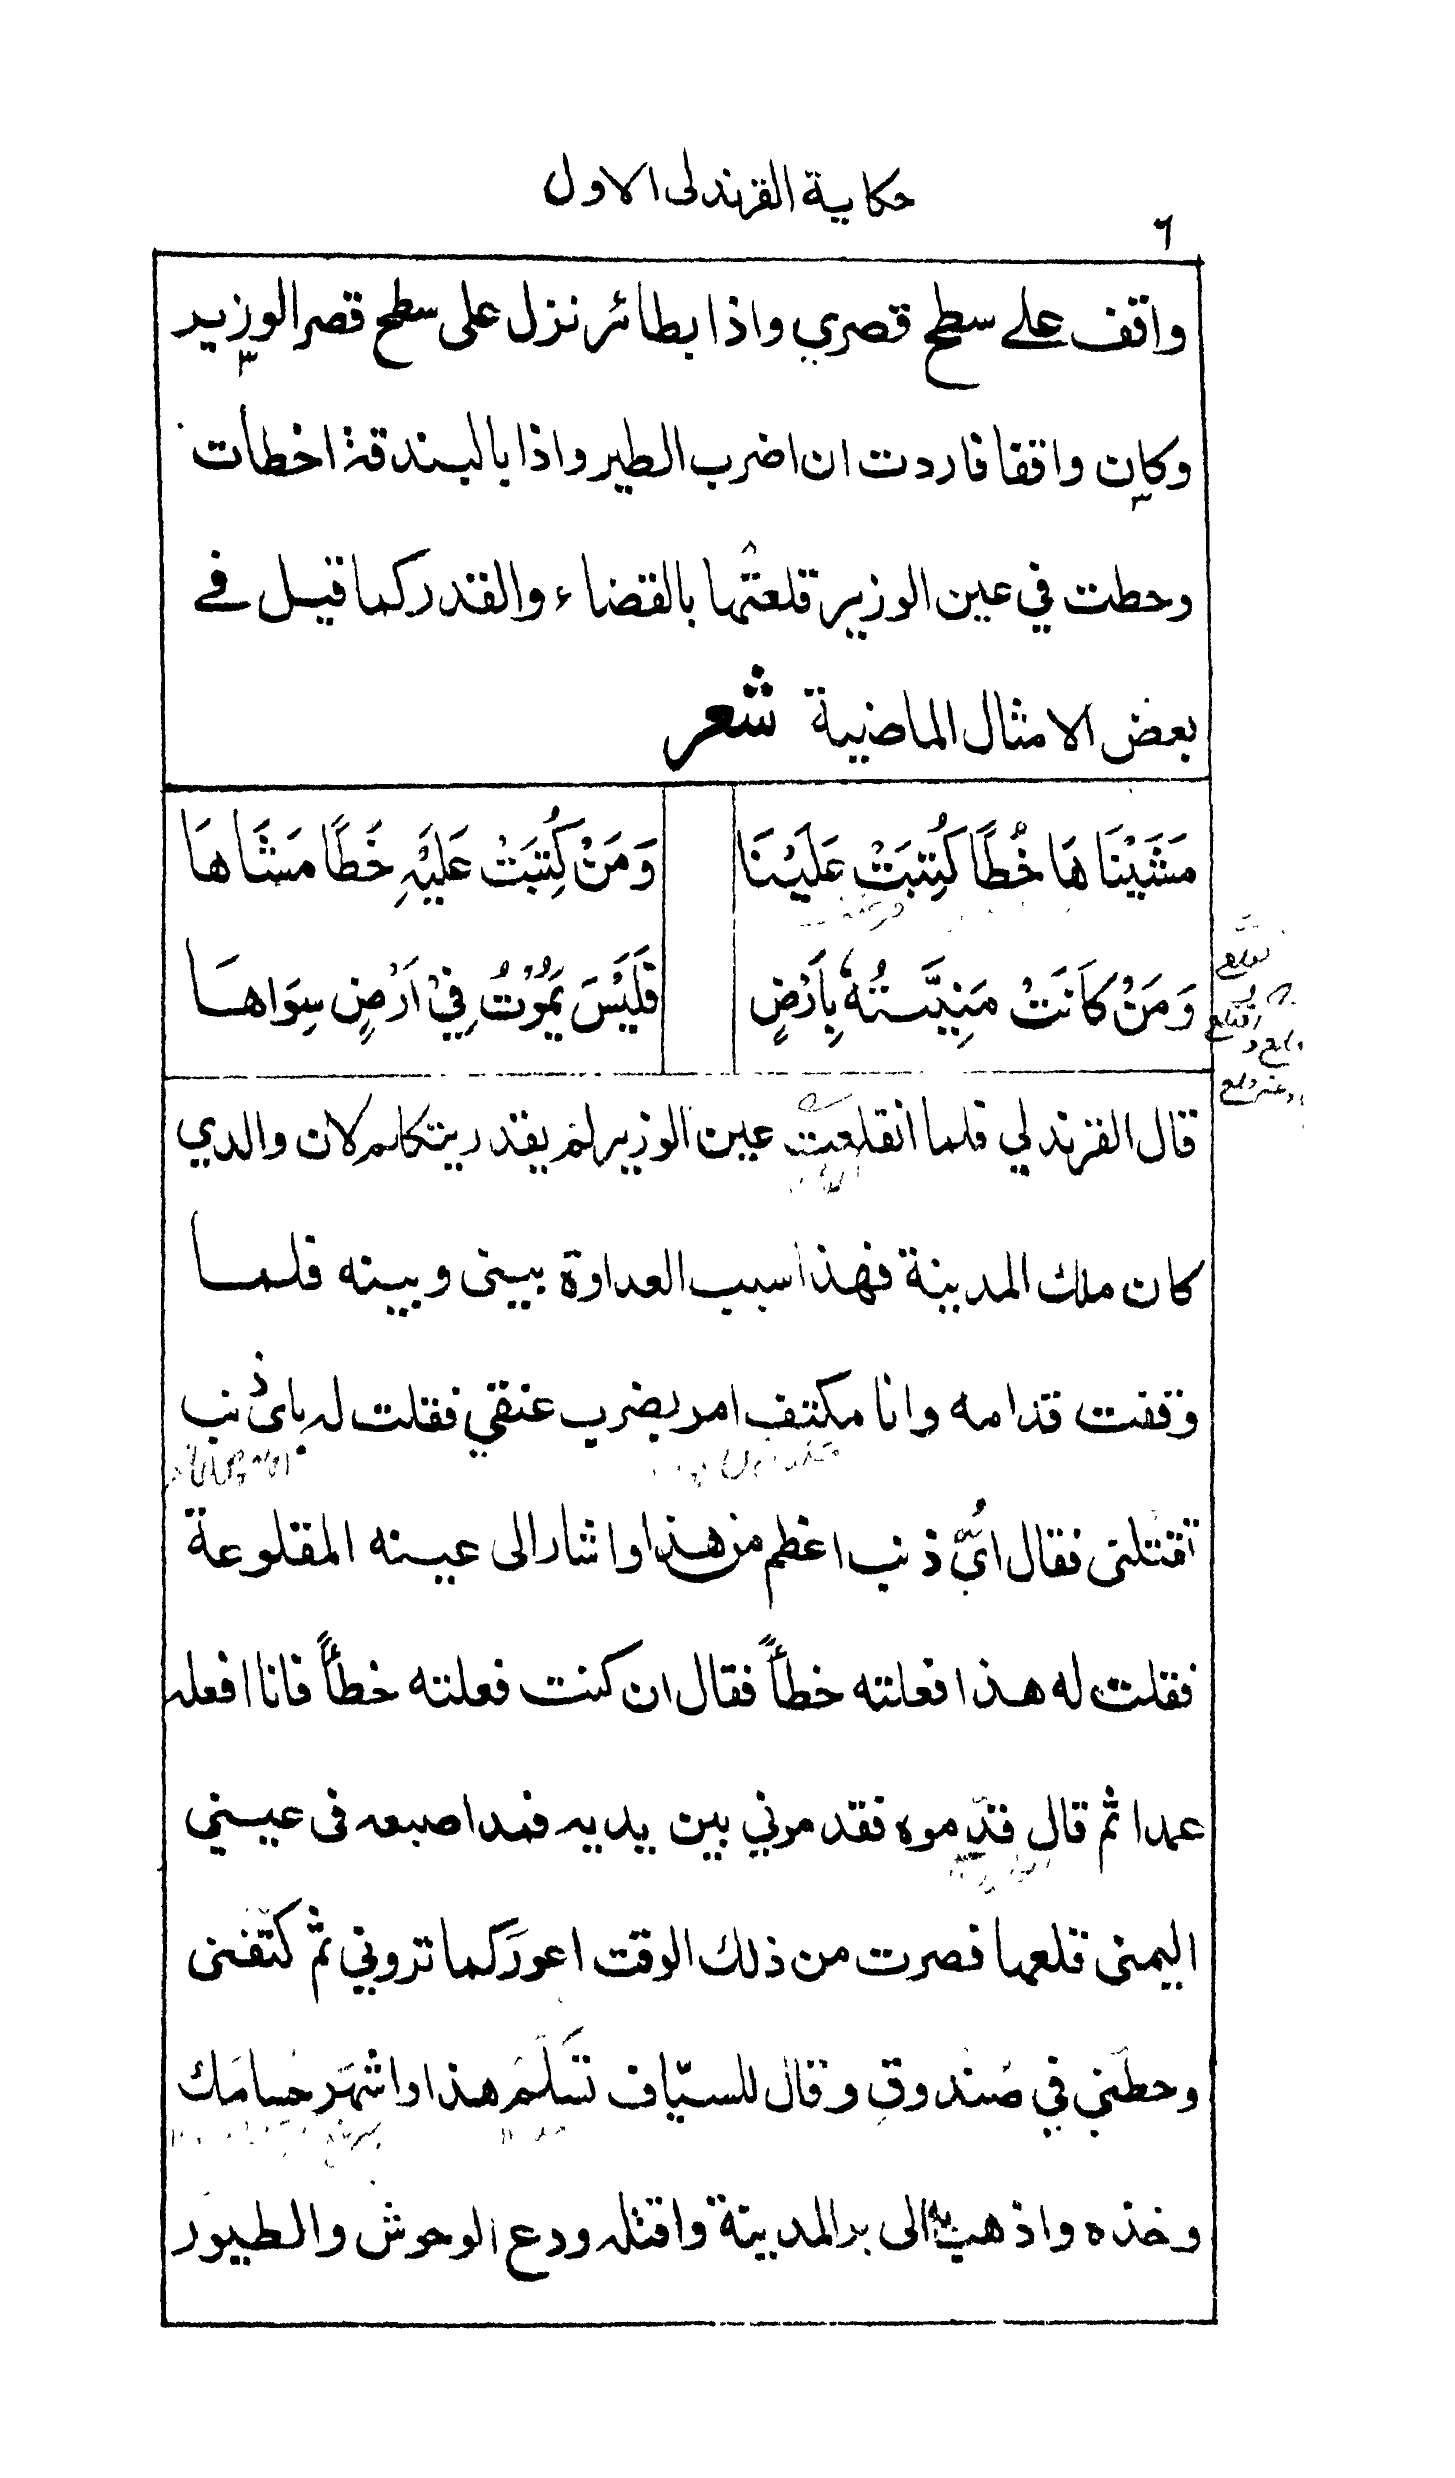 حكاية القرندلى الاول
٦
واقف على سطح قصري واذا بطائر نزل على سطح قصر الوزير
وكان واقفا فاردت ان اضرب الطير واذا بالبندقة اخطأت
وحطت في عين الوزير قلعتها بالقضاء والقدر كما قيل في
بعض الامثال الماضية شعر
مَشَيْنَاهَا خُطًا كُتِبَتْ عَلَيْنَا وَمَنْ كُتِبَتْ عَلَيْهِ خُطًا مَشَاهَا
وَمَنْ كَانَتْ مَنِيَّتُهُ بِاَرْضٍ فَلَيْسَ يَمُوْتُ فِيْ اَرْضٍ سِوَاهَا
قال القرندلي فلما انقلعت عين الوزير لم يقدر يتكلم لان والدي
كان ملك المدينة فهذا سبب العداوة بيني وبينه فلما
وقفت قدامه وانا مكتف امر بضرب عنقي فقلت له باىّ ذنب
تقتلنى فقال اىُّ ذنب اعظم من هذا واشار الى عينه المقلوعة
فقلت له هذا فعلته خطأً فقال ان كنت فعلته خطأً فانا افعله
عمدا ثم قال قدّموه فقدموني بين يديه فمد اصبعه فى عيني
اليمنى قلعها فصرت من ذلك الوقت اعور كما تروني ثم كتّفنى
وحطني في صندوق وقال للسيّاف تسلم هذا واشهر حسامك
وخذه واذهب به الى بر المدينة واقتله ودع الوحوش والطيور